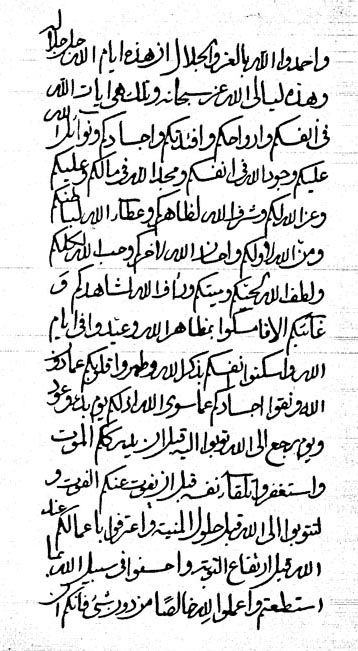 واحمدوا الله بالعز والجلال از هذه ايام الله جل جلاله
وهذه ليالى الله عز سبحانه وتلك هى ايات الله
فى انفسكم وارواحكم وافئدتكم واجسادكم الله
عليكم وجود الله فى انفسكم ومجد الله فى مالكم وعليكم
وعز الله لكم وشرف الله لظاهركم وعطاء الله لباطنكم
ومن الله لاولكم واحسان الله لاخركم وحب الله لكلكم
ولطف الله لحيكم وميتكم ورأفة الله لشاهدكم و
غائبكم الا فامسكوا بمظاهر الله وعيدوا فى ايام
الله واسكنوا انفسكم بذكر الله وطهروا قلوبكم عما دون
الله ونقوا اجسادكم عما سوى الله اذ لكم يوم
ويوم رجع الى الله توبوا اليه قبل ان يدرككم الموت
واستغفروا تلقاء نفسه قبل ان يفوت عنكم الفوت و
لتتوبوا الى الله قبل حلول المنية واعترفوا باعمالكم عند
الله قبل ارتفاع التوبة واحسنوا فى سبيل الله بما
استطعتم واعملوا لله خالصا من دون شئ فانكم ان